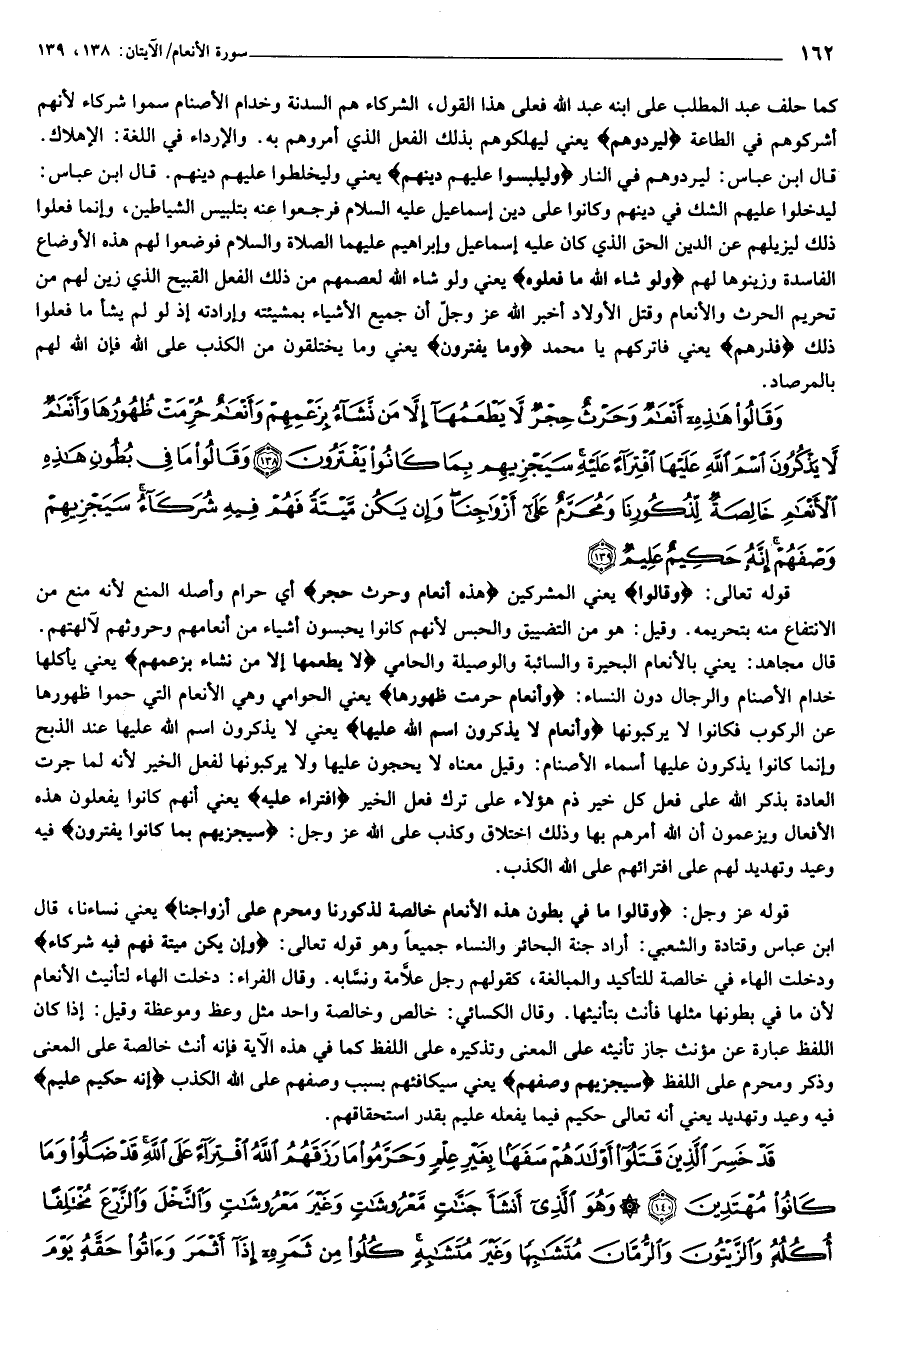 ١٦٢ سورة الأنعام/ الآيتان: ١٣٨، ١٣٩
كما حلف عبد المطلب على ابنه عبد الله فعلى هذا القول، الشركاء هم السدنة وخدام الأصنام سموا شركاء لأنهم
أشركوهم في الطاعة ﴿ليردوهم﴾ يعني ليهلكوهم بذلك الفعل الذي أمروهم به. والإرداء في اللغة: الإهلاك.
قال ابن عباس: ليردوهم في النار ﴿وليلبسوا عليهم دينهم﴾ يعني وليخلطوا عليهم دينهم. قال ابن عباس:
ليدخلوا عليهم الشك في دينهم وكانوا على دين إسماعيل عليه السلام فرجعوا عنه بتلبيس الشياطين، وإنما فعلوا
ذلك ليزيلهم عن الدين الحق الذي كان عليه إسماعيل وإبراهيم عليهما الصلاة والسلام فوضعوا لهم هذه الأوضاع
الفاسدة وزينوها لهم ﴿ولو شاء الله ما فعلوه﴾ يعني ولو شاء الله لعصمهم من ذلك الفعل القبيح الذي زين لهم من
تحريم الحرث والأنعام وقتل الأولاد أخبر الله عز وجلّ أن جميع الأشياء بمشيئته وإرادته إذ لو لم يشأ ما فعلوا
ذلك ﴿فذرهم﴾ يعني فاتركهم يا محمد ﴿وما يفترون﴾ يعني وما يختلقون من الكذب على الله فإن الله لهم
بالمرصاد.
وَقَالُوا۟ هَـٰذِهِۦٓ أَنْعَـٰمٌ وَحَرْثٌ حِجْرٌ لَّا يَطْعَمُهَآ إِلَّا مَن نَّشَآءُ بِزَعْمِهِمْ وَأَنْعَـٰمٌ حُرِّمَتْ ظُهُورُهَا وَأَنْعَـٰمٌ
لَّا يَذْكُرُونَ ٱسْمَ ٱللَّهِ عَلَيْهَا ٱفْتِرَآءً عَلَيْهِ ۚ سَيَجْزِيهِم بِمَا كَانُوا۟ يَفْتَرُونَ ﴿١٣٨﴾ وَقَالُوا۟ مَا فِى بُطُونِ هَـٰذِهِ
ٱلْأَنْعَـٰمِ خَالِصَةٌ لِّذُكُورِنَا وَمُحَرَّمٌ عَلَىٰٓ أَزْوَٰجِنَا ۖ وَإِن يَكُن مَّيْتَةً فَهُمْ فِيهِ شُرَكَآءُ ۚ سَيَجْزِيهِمْ
وَصْفَهُمْ ۚ إِنَّهُۥ حَكِيمٌ عَلِيمٌ ﴿١٣٩﴾
قوله تعالى: ﴿وقالوا﴾ يعني المشركين ﴿هذه أنعام وحرث حجر﴾ أي حرام وأصله المنع لأنه منع من
الانتفاع منه بتحريمه. وقيل: هو من التضييق والحبس لأنهم كانوا يحبسون أشياء من أنعامهم وحروثهم لآلهتهم.
قال مجاهد: يعني بالأنعام البحيرة والسائبة والوصيلة والحامي ﴿لا يطعمها إلا من نشاء بزعمهم﴾ يعني يأكلها
خدام الأصنام والرجال دون النساء: ﴿وأنعام حرمت ظهورها﴾ يعني الحوامي وهي الأنعام التي حموا ظهورها
عن الركوب فكانوا لا يركبونها ﴿وأنعام لا يذكرون اسم الله عليها﴾ يعني لا يذكرون اسم الله عليها عند الذبح
وإنما كانوا يذكرون عليها أسماء الأصنام: وقيل معناه لا يحجون عليها ولا يركبونها لفعل الخير لأنه لما جرت
العادة بذكر الله على فعل كل خير ذم هؤلاء على ترك فعل الخير ﴿افتراء عليه﴾ يعني أنهم كانوا يفعلون هذه
الأفعال ويزعمون أن الله أمرهم بها وذلك اختلاق وكذب على الله عز وجل: ﴿سيجزيهم بما كانوا يفترون﴾ فيه
وعيد وتهديد لهم على افترائهم على الله الكذب.
قوله عز وجل: ﴿وقالوا ما في بطون هذه الأنعام خالصة لذكورنا ومحرم على أزواجنا﴾ يعني نساءنا، قال
ابن عباس وقتادة والشعبي: أراد جنة البحائر والنساء جميعاً وهو قوله تعالى: ﴿وإن يكن ميتة فهم فيه شركاء﴾
ودخلت الهاء في خالصة للتأكيد والمبالغة، كقولهم رجل علاَّمة ونسَّابه. وقال الفراء: دخلت الهاء لتأنيث الأنعام
لأن ما في بطونها مثلها فأنث بتأنيثها. وقال الكسائي: خالص وخالصة واحد مثل وعظ وموعظة وقيل: إذا كان
اللفظ عبارة عن مؤنث جاز تأنيثه على المعنى وتذكيره على اللفظ كما في هذه الآية فإنه أنث خالصة على المعنى
وذكر ومحرم على اللفظ ﴿سيجزيهم وصفهم﴾ يعني سيكافئهم بسبب وصفهم على الله الكذب ﴿إنه حكيم عليم﴾
فيه وعيد وتهديد يعني أنه تعالى حكيم فيما يفعله عليم بقدر استحقاقهم.
قَدْ خَسِرَ ٱلَّذِينَ قَتَلُوٓا۟ أَوْلَـٰدَهُمْ سَفَهًۢا بِغَيْرِ عِلْمٍ وَحَرَّمُوا۟ مَا رَزَقَهُمُ ٱللَّهُ ٱفْتِرَآءً عَلَى ٱللَّهِ ۚ قَدْ ضَلُّوا۟ وَمَا
كَانُوا۟ مُهْتَدِينَ ﴿١٤٠﴾ ۞ وَهُوَ ٱلَّذِىٓ أَنشَأَ جَنَّـٰتٍ مَّعْرُوشَـٰتٍ وَغَيْرَ مَعْرُوشَـٰتٍ وَٱلنَّخْلَ وَٱلزَّرْعَ مُخْتَلِفًا
أُكُلُهُۥ وَٱلزَّيْتُونَ وَٱلرُّمَّانَ مُتَشَـٰبِهًا وَغَيْرَ مُتَشَـٰبِهٍ ۚ كُلُوا۟ مِن ثَمَرِهِۦٓ إِذَآ أَثْمَرَ وَءَاتُوا۟ حَقَّهُۥ يَوْمَ